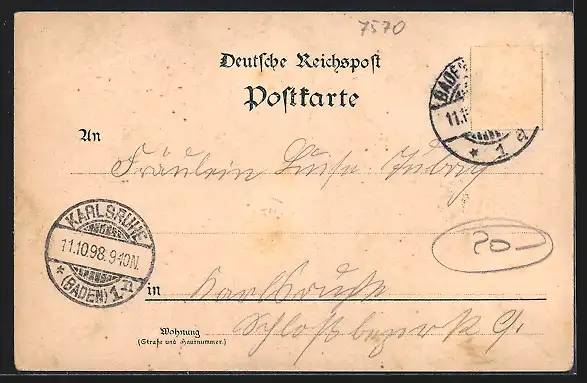 7570
Deutsche Reichspost
Postkarte
BADEN
11.1
* 1 a
An
Fräulein Luise
KARLSRUHE
11.10.98.9-10N.
* (BADEN) 1.
20.-
in Karlsruhe
Wohnung
(Straße und Hausnummer.)
Schloßbezirk 9.